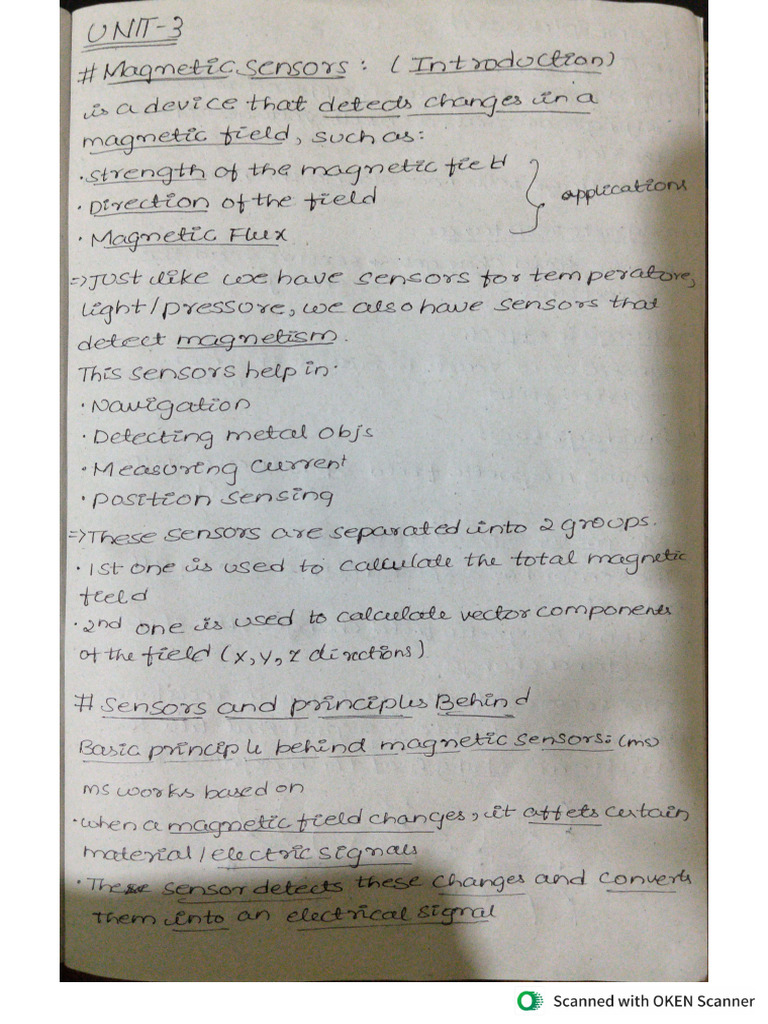 UNIT-3
# Magnetic Sensors: (Introduction)
is a device that detects changes in a
magnetic field, such as:
· strength of the magnetic field
· Direction of the field
· Magnetic Flux
applications
=> Just like we have sensors for temperature,
light/pressure, we also have sensors that
detect magnetism.
This sensors help in·
· Navigation
· Detecting metal objs
· Measuring current
· Position sensing
=> These sensors are separated into 2 groups.
· 1st one is used to calculate the total magnetic
field
· 2nd one is used to calculate vector components
of the field (x, y, z directions)
# Sensors and principles Behind
Basic principle behind magnetic sensors: (ms)
ms works based on
· when a magnetic field changes, it affets certain
material/electric signals
· These sensor detects these changes and converts
them into an electrical signal
Scanned with OKEN Scanner